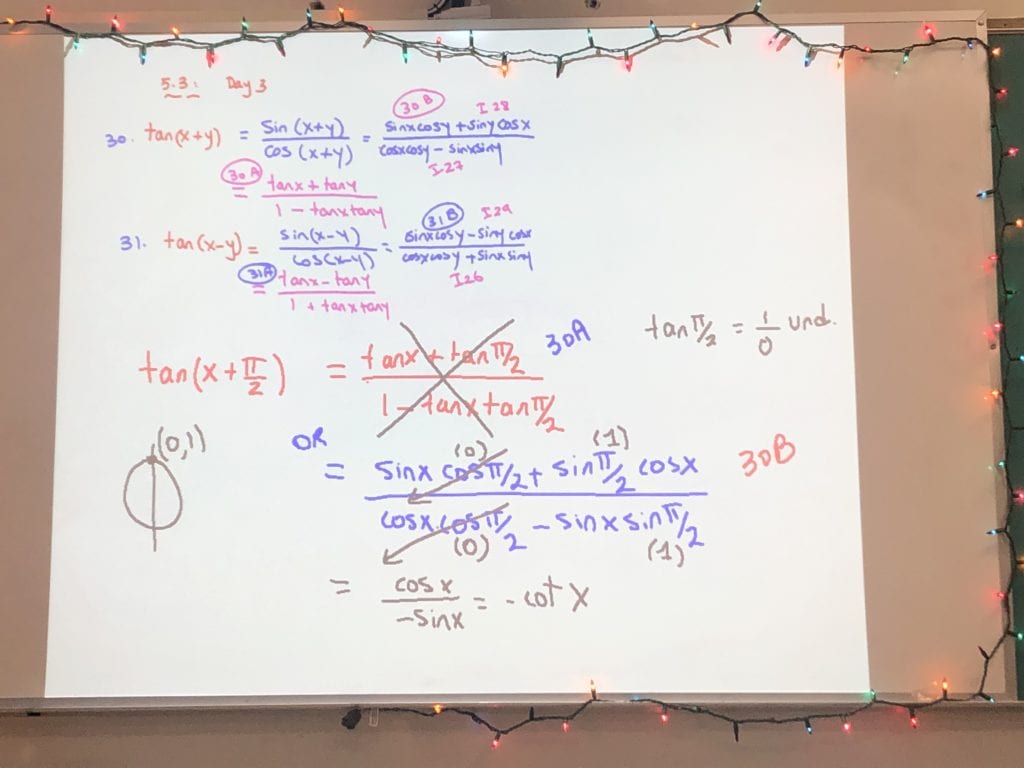 5.3: Day 3
30. tan(x+y) = sin(x+y)/cos(x+y) = (30B) sinxcosy + sinycosx / cosxcosy - sinxsiny I28 I27
(30A) = tanx + tany / 1 - tanxtany
31. tan(x-y) = sin(x-y)/cos(x-y) = (31B) sinxcosy - siny cosx / cosxcosy + sinxsiny I29 I26
(31A) = tanx - tany / 1 + tanxtany
tan π/2 = 1/0 und.
tan(x + π/2) = tanx + tan π/2 / 1 - tanx tan π/2 30A
(0,1)
OR
= sinx cos π/2 (0) + sin π/2 (1) cosx / cosx cos π/2 (0) - sinx sin π/2 (1) 30B
= cosx / -sinx = -cot x